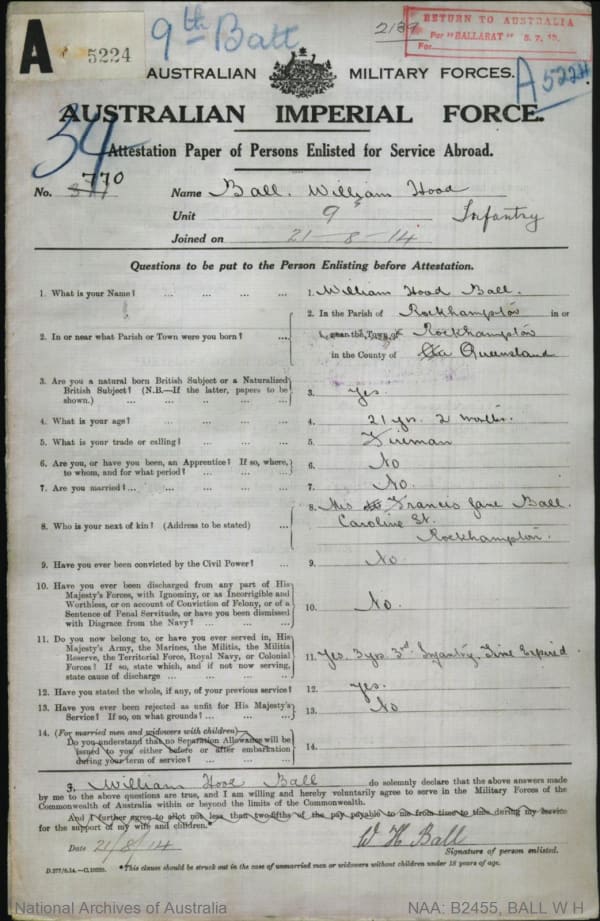 A 5224
9th Batt
2189
RETURN TO AUSTRALIA
Per "BALLARAT" 5.7.18.
For
A5224
AUSTRALIAN MILITARY FORCES.
AUSTRALIAN IMPERIAL FORCE.
34
Attestation Paper of Persons Enlisted for Service Abroad.
No. 770 Name Ball. William Hood
Unit 9th Infantry
Joined on 21-8-14
Questions to be put to the Person Enlisting before Attestation.
1. What is your Name? ... ... ... ... 1. William Hood Ball.
2. In or near what Parish or Town were you born? ... 2. In the Parish of Rockhampton in or
near the Town of Rockhampton
in the County of Queensland
3. Are you a natural born British Subject or a Naturalized
British Subject? (N.B.—If the latter, papers to be
shown.) ... ... ... ... ... 3. Yes.
4. What is your age? ... ... ... ... 4. 21 yrs. 2 mths.
5. What is your trade or calling? ... ... ... 5. Fireman
6. Are you, or have you been, an Apprentice? If so, where,
to whom, and for what period? ... ... ... 6. No
7. Are you married? ... ... ... ... ... 7. No.
8. Who is your next of kin? (Address to be stated) ... 8. Mrs Francis Jane Ball.
Caroline St.
Rockhampton.
9. Have you ever been convicted by the Civil Power? ... 9. No.
10. Have you ever been discharged from any part of His
Majesty's Forces, with Ignominy, or as Incorrigible and
Worthless, or on account of Conviction of Felony, or of a
Sentence of Penal Servitude, or have you been dismissed
with Disgrace from the Navy? ... ... ... 10. No.
11. Do you now belong to, or have you ever served in, His
Majesty's Army, the Marines, the Militia, the Militia
Reserve, the Territorial Force, Royal Navy, or Colonial
Forces? If so, state which, and if not now serving,
state cause of discharge ... ... ... ... 11. Yes. 3 yrs. 3rd Infantry. Time Expired.
12. Have you stated the whole, if any, of your previous service? 12. Yes.
13. Have you ever been rejected as unfit for His Majesty's
Service? If so, on what grounds? ... ... ... 13. No
14. (For married men and widowers with children)—
Do you understand that no Separation Allowance will be
issued to you either before or after embarkation
during your term of service? ... ... ... 14.
I, William Hood Ball do solemnly declare that the above answers made
by me to the above questions are true, and I am willing and hereby voluntarily agree to serve in the Military Forces of the
Commonwealth of Australia within or beyond the limits of the Commonwealth.
And I further agree to allot not less than two-fifths of the pay payable to me from time to time during my service
for the support of my wife and children.*
Date 21/8/14 W H Ball
Signature of person enlisted.
D.277/6.14.—C.10235. *This clause should be struck out in the case of unmarried men or widowers without children under 18 years of age.
National Archives of Australia NAA: B2455, BALL W H